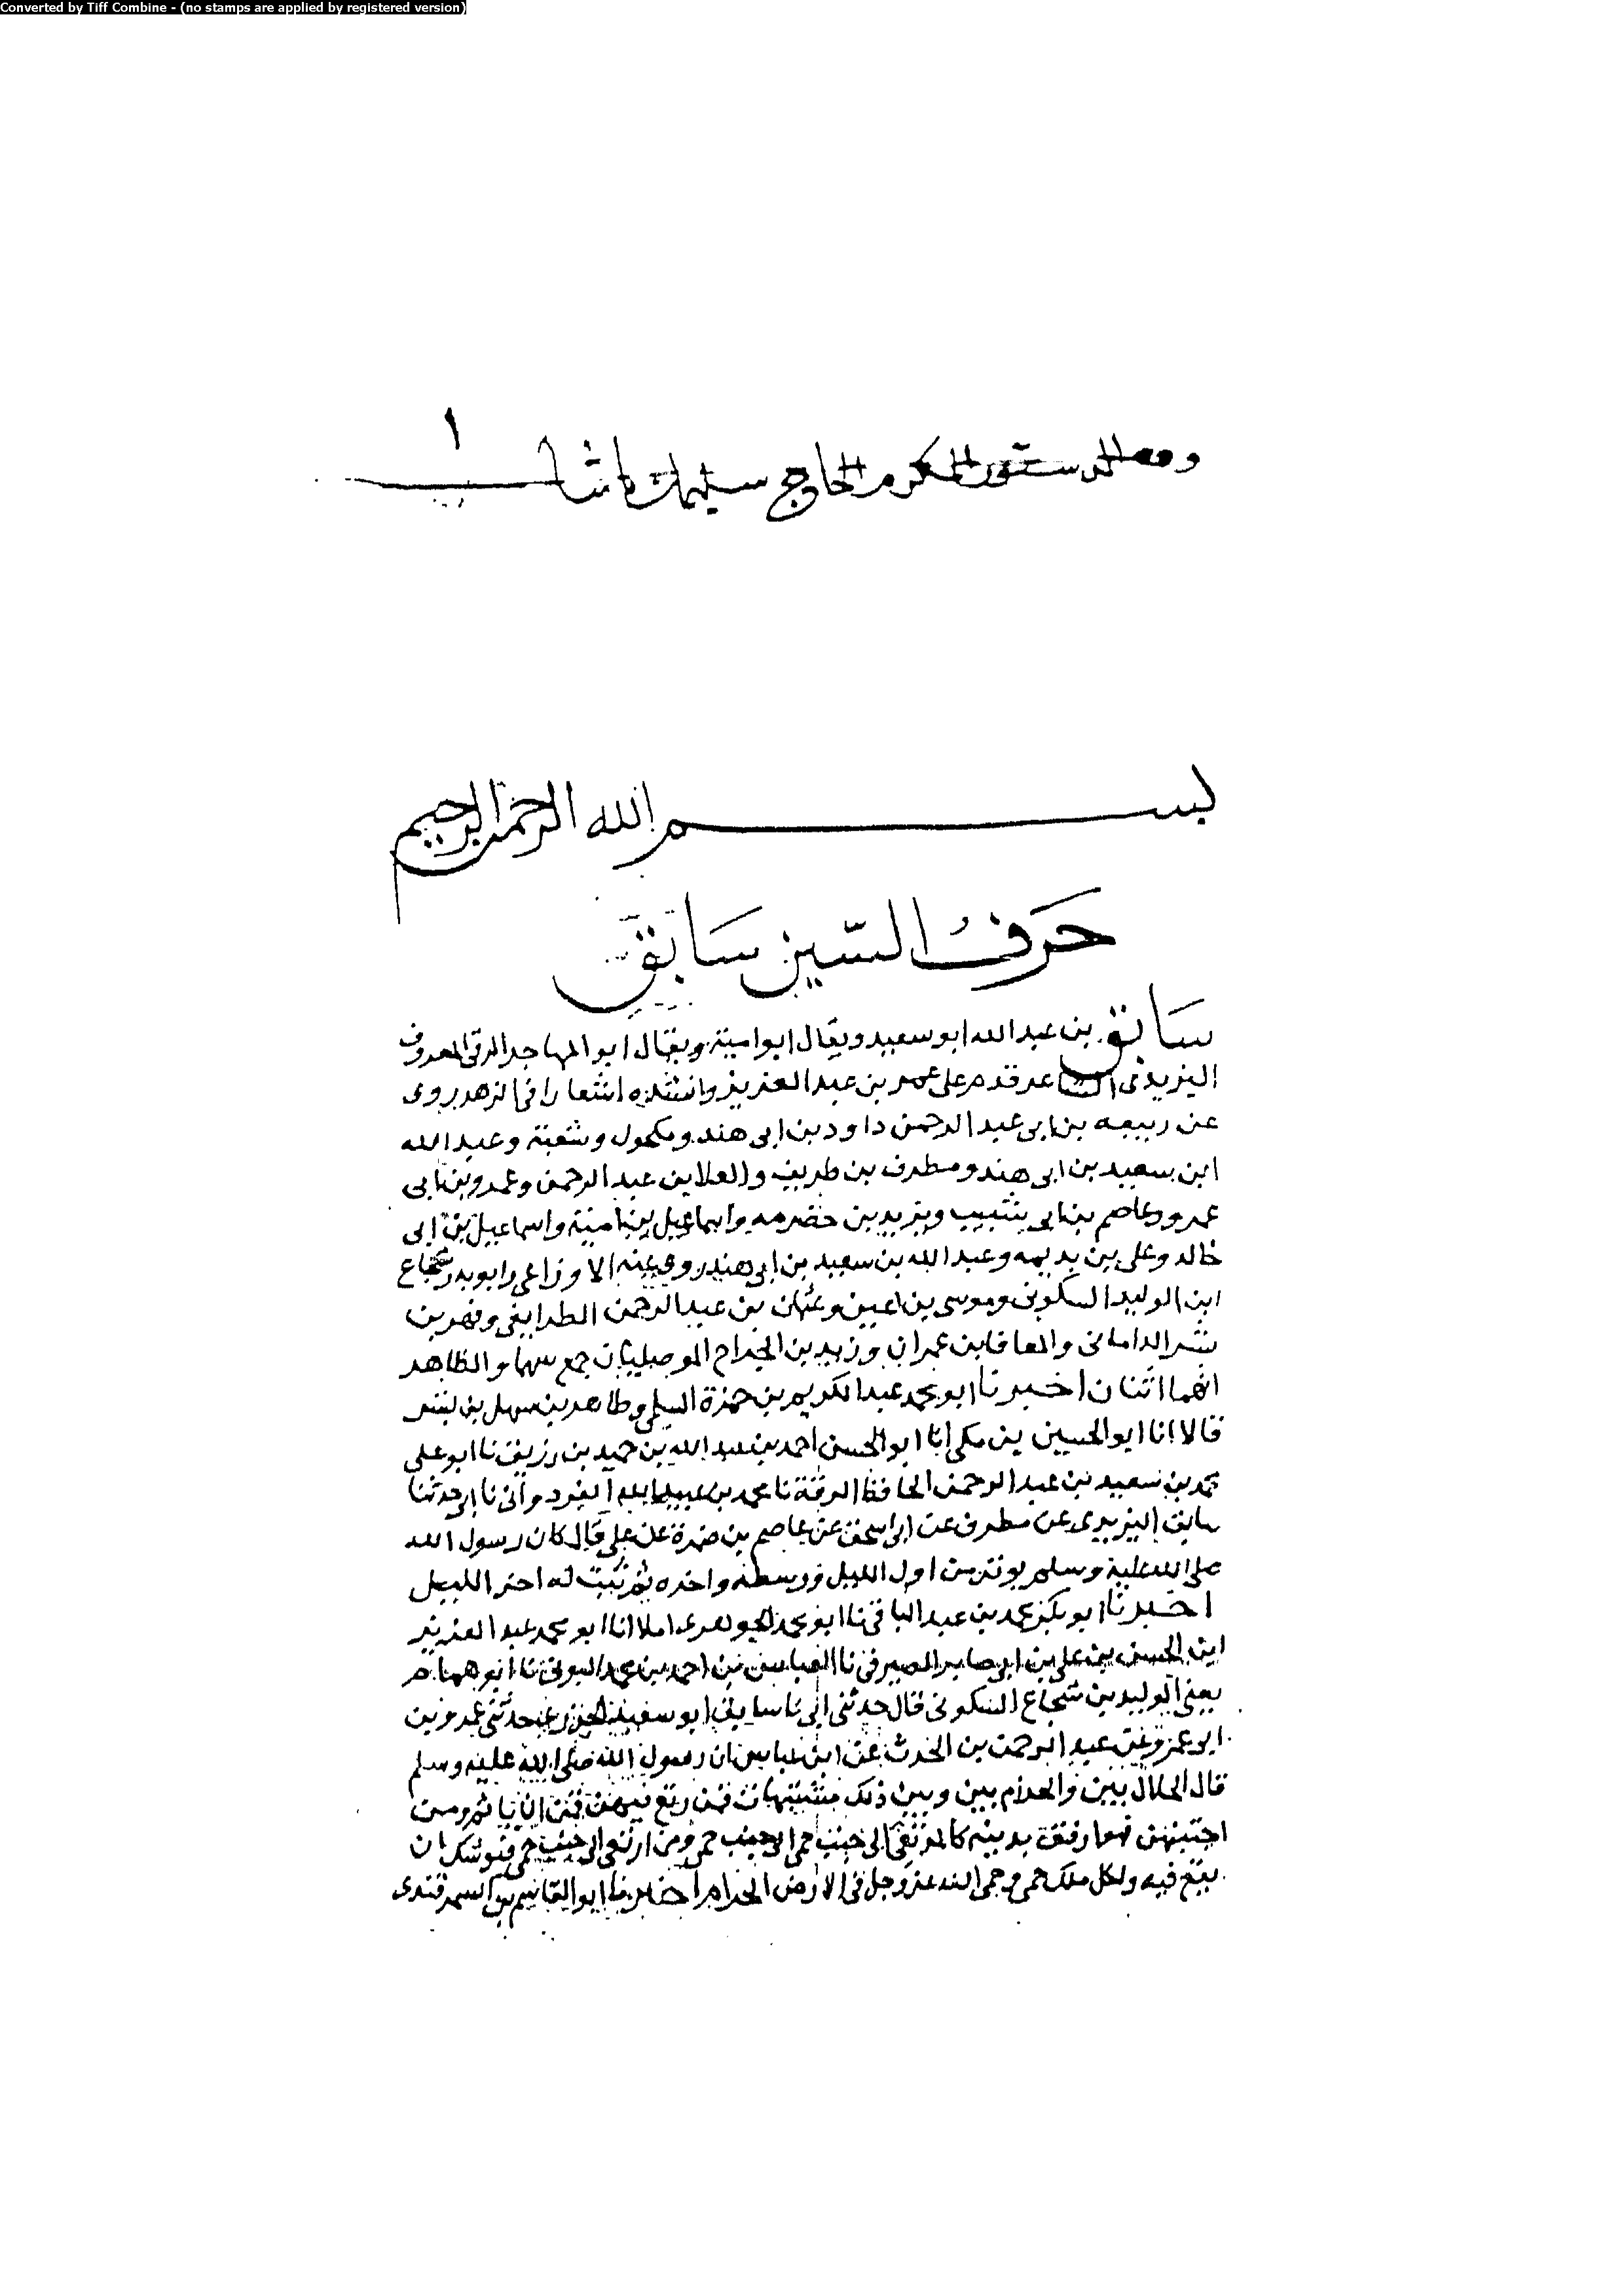 Converted by Tiff Combine - (no stamps are applied by registered version)
١
المكرم الحاج سليمان باشا
بسم الله الرحمن الرحيم
حرف السين سابق
سابق بن عبد الله ابو سعيد ويقال ابو امية ويقال ابو المهاجر الرقي المعروف
اليزيدي الشاعر قدم على عمر بن عبد العزيز وانشده اشعارا في الزهد روى
عن ربيعه بن ابي عبد الرحمن داود بن ابي هند ومكحول وشعبة وعبد الله
ابن سعيد بن ابي هند ومطرف بن طريف والعلا بن عبد الرحمن وعمرو بن ابي
عمرو وعاصم بن ابي شبيب ويزيد بن خضرمه واسماعيل بن امية واسماعيل بن ابي
خالد وعلى بن بديمه وعبد الله بن سعيد بن ابي هند روى عنه الاوزاعي وابو بدر شجاع
ابن الوليد السكوني وموسى بن اعين وعثمان بن عبد الرحمن الطرايفي و
بشر الداماني والمعافا بن عمران و بن الموصليان جمع والظاهر
انهما اثنان اخبرنا ابو محمد عبد الكريم بن حمزة السلمي وطاهر بن سهل بن بشر
قالا انا ابو الحسين بن مكي انا ابو الحسن احمد بن عبد الله بن حميد بن رزيق نا ابو على
محمد بن سعيد بن عبد الرحمن الحافظ الرقة نا محمد بن نا ابي حدثنا
سابق اليزيدي عن مطرف عن ابي اسحق عن عاصم بن ضمرة عن على قال كان رسول الله
صلى الله عليه وسلم يوتر من اول الليل ووسطه واخره ثم ثبت له اخر الليل
اخبرنا ابو بكر محمد بن عبد الباقي نا ابو محمد الجوهرى املا انا ابو محمد عبد العزيز
ابن الحسن بن على بن ابي صابر الصيرفي نا العباس بن احمد بن محمد نا ابو همام
يعني الوليد بن شجاع السكوني قال حدثني ابي نا سابق ابو سعيد الجزري حدثني عمرو بن
ابي عمرو عن عبد الرحمن بن الحرث عن ابن عباس ان رسول الله صلى الله عليه وسلم
قال الحلال بين والحرام بين وبين ذلك مشتبهات فمن
اجتنبهن بدينه كالمرتقي الى جنب حمى ومن ارتعى الى جنب حمى فيوشك ان
يقع فيه ولكل ملك حمى وحمى الله عز وجل في الارض الحرام اخبرنا ابو القاسم بن السمرقندى